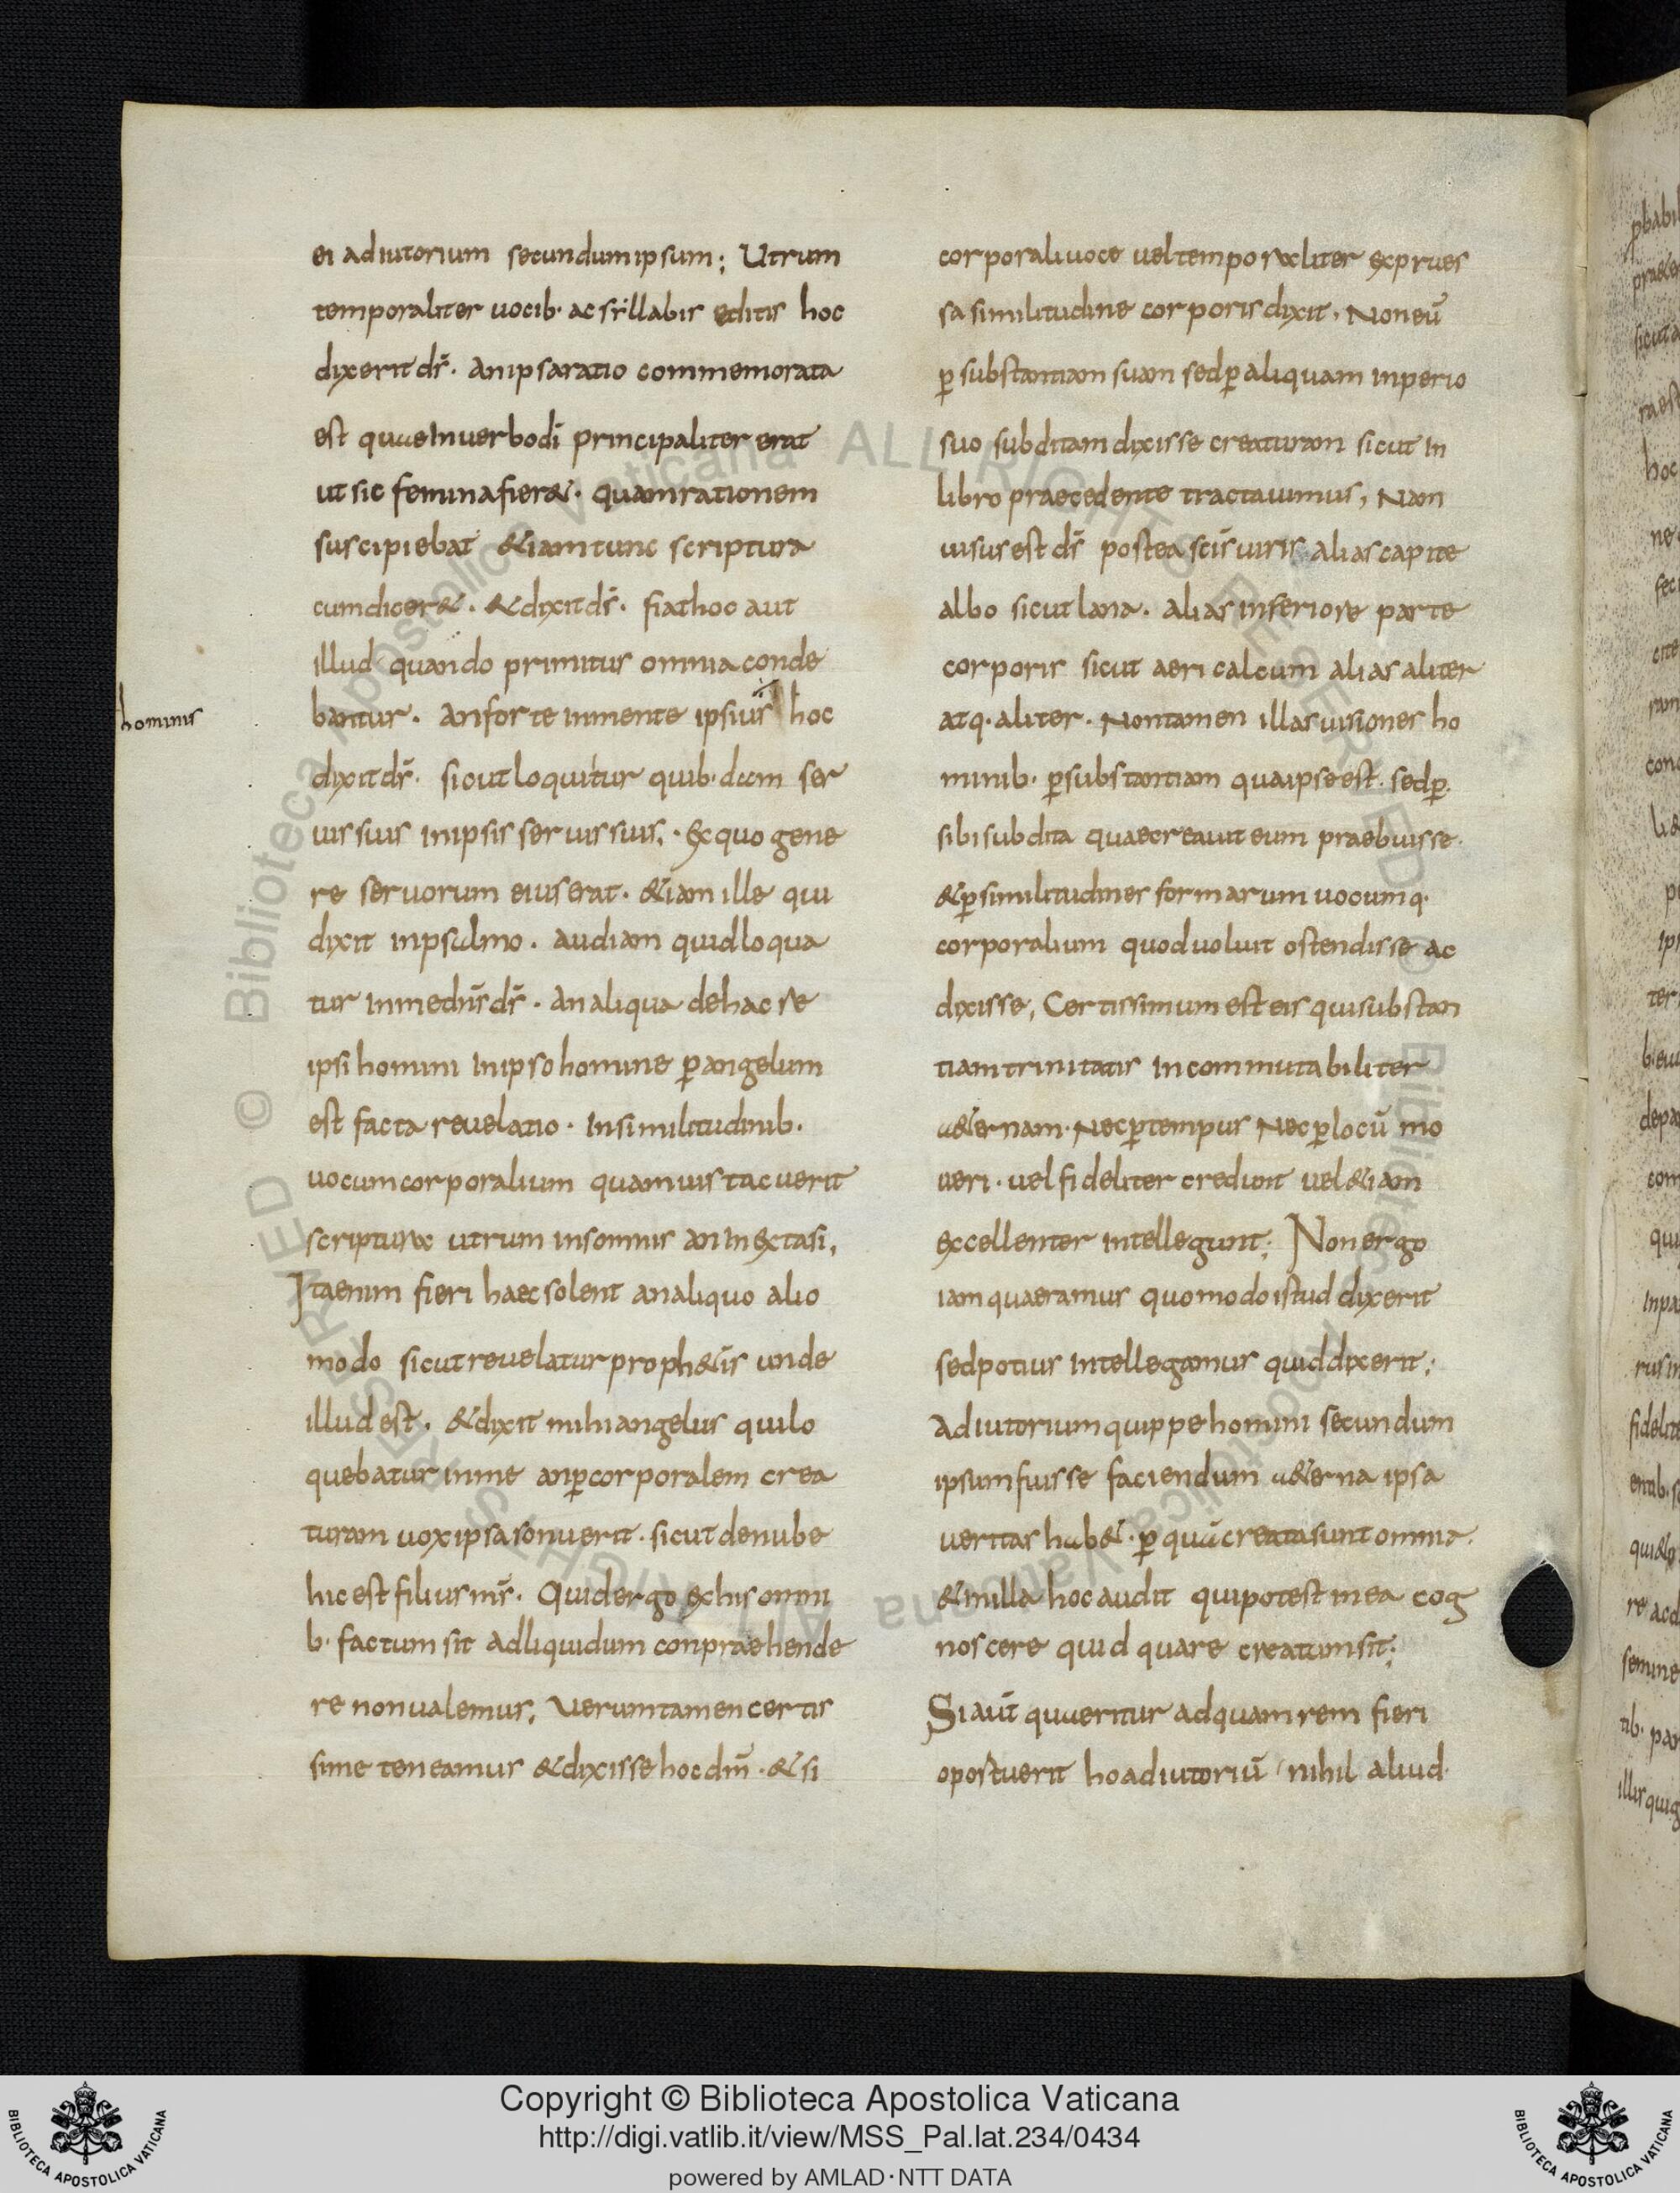 ei adiutorium secundum ipsum; Utrum
temporaliter uocib· ac sillabis editis hoc
dixerit ds̄· an ipsa ratio commemorata
est quae in uerbo dī principaliter erat
ut sic femina fier&· quam rationem
suscipiebat &iam tunc scriptura
cum dicer&· & dixit ds̄· fiat hoc aut
illud quando primitus omnia conde
bantur· an forte in mente ipsius hoc
hominis
dixit ds̄· sicut loquitur quib·dam ser
uis suis in ipsis seruis suis;· Ex quo gene
re seruorum eius erat· &iam ille qui
dixit in psalmo· audiam quid loqua
tur in me dn̄s ds̄· an aliqua de hac re
ipsi homini in ipso homine ꝑ angelum
est facta reuelatio· in similitudinib·
uocum corporalium quamuis tacuerit
scriptura utrum in somnis an in extasi,
Ita enim fieri haec solent an aliquo alio
modo sicut reuelatur proph&is unde
illud est· & dixit mihi angelus qui lo
quebatur in me an ꝑ corporalem crea
turam uox ipsa sonuerit· sicut de nube
hic est filius ms̄· Quid ergo ex his omni
b· factum sit ad liquidum conpraehende
re non ualemus; Uerumtamen certis
sime teneamus & dixisse hoc dm̄· & si
corporali uoce uel temporaliter expraes
sa similitudine corporis dixit· Non eū
ꝑ substantiam suam sed ꝑ aliquam inperio
suo subditam dixisse creaturam sicut in
libro praecedente tractauimus, Nam
uisus est ds̄ postea scīs uiris alias capite
albo sicut lana· alias inferiore parte
corporis sicut aeri calcum alias aliter
atq· aliter· Non tamen illas uisiones ho
minib· ꝑ substantiam qua ipse est· sed ꝑ
sibi subdita quae creauit eum praebuisse·
& ꝑ similitudines formarum uocumq·
corporalium quod uoluit ostendisse ac
dixisse, Certissimum est eis qui substan
tiam trinitatis incommutabiliter
a&ernam· Nec ꝑ tempus Nec ꝑ locū mo
ueri· uel fideliter credunt uel &iam
excellenter intellegunt; Non ergo
iam quaeramus quomodo istud dixerit
sed potius intellegamus quid dixerit;
Adiutorium quippe homini secundum
ipsum fuisse faciendum a&erna ipsa
ueritas hab&· ꝑ quā creata sunt omnia·
& in illa hoc audit qui potest in ea cog
noscere quid quare creatum sit;
Si aut̄ quaeritur ad quam rem fieri
oportuerit ho adiutoriū nihil aliud·
Copyright © Biblioteca Apostolica Vaticana
http://digi.vatlib.it/view/MSS_Pal.lat.234/0434
powered by AMLAD·NTT DATA